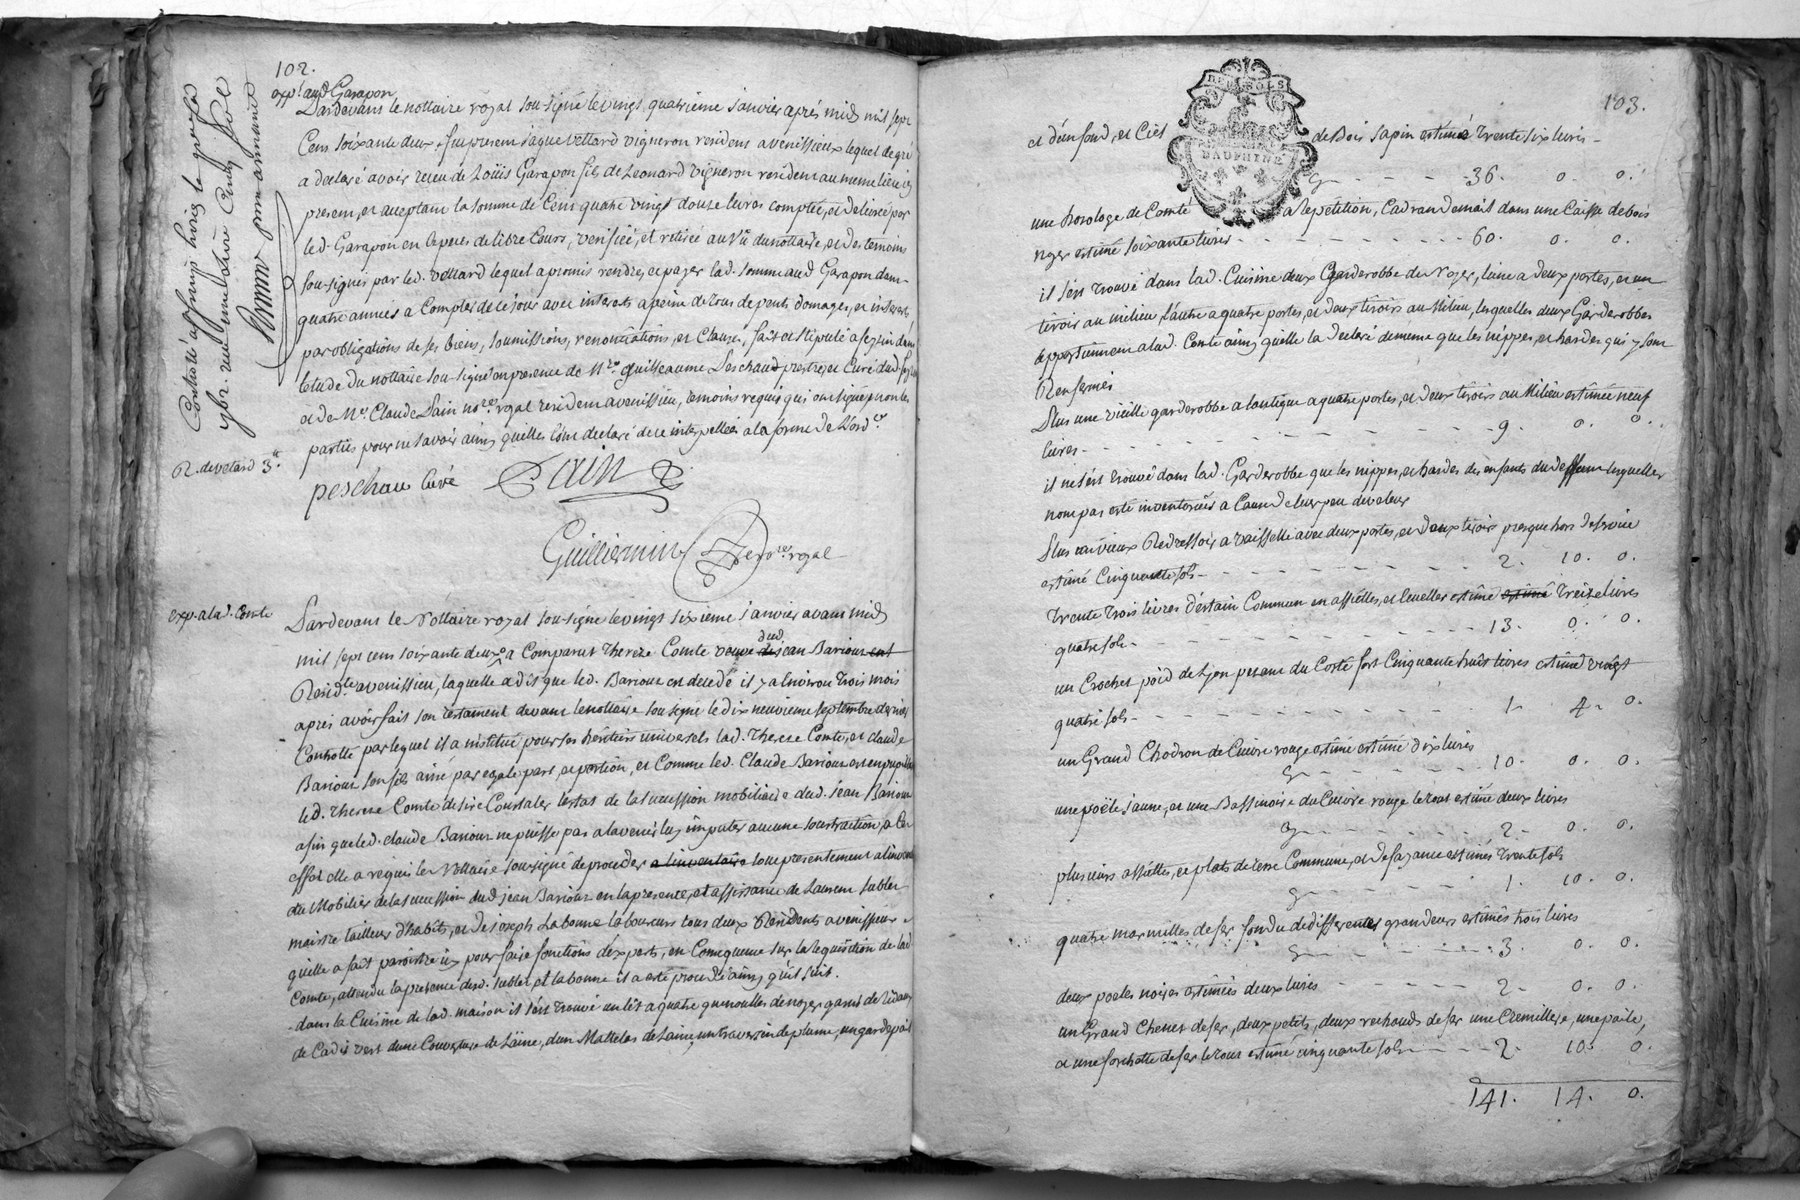 102.
exp! aud Garapon
Pardevant le nottaire royal sou-signé le vingt quatrieme janvier aprés midy mil sept
Cens soixante deux, fut presem jaque vettard vigneron residens a venissieux lequel de gré
a declaré avoir receu de Loüis Garapon fils de Leonard vigneron residem au meme lieu icy
presem, et acceptam la somme de Cens quatre vingt douze livres comptée, et delivrée par
led. Garapon en especes de libre Cours, verifiée, et retirée au Vû du nottaire, et des temoins
sou-signés par led. vettard lequel a promis rendre, et payer lad. somme aud Garapon dans
quatre annees a Compter de ce jour avec interets a peine de tous depents domages, et interets,
par obligations de ses biens, soumissions, renonciations, et Clauses, fait et stipulé a feyzin dans
letude du nottaire sou-signé en presence de Mre. guilleaume Peschaud prestre, et Curé dud feyzin
et de Me. Claude Pain nore. royal residem a venissieu, temoins requis qui ont signés non les
parties pour ne savoir ainsy quelles l'ont declaré de ce interpellées a la forme de L'ordce.
R. de vetard 3tt.
peschau Curé Pain
Guilliermin nore. royal
Controllé a St simp horié le premier
9bre. reçu une livre cinq sols
exp. a lad. Comte
Pardevant le Nottaire royal sou-signé le vingt sixieme janvier avant midy
mil sept cens soixante deux, a Comparut Therese Comte veuve dud jean Bariour
Residte. a venissieu, laquelle a dis que led. Bariour est decedé il y a Environ trois mois
aprés avoir fait son testament devant le nottaire sou signé le dix neuvieme septembre dernier
Controllé par lequel il a institué pour ses héritiers universels lad. Therese Comte, et claude
Bariour son fils ainé par egale part, et portion, et Comme led. Claude Bariour est en pupillarité
led. Therese Comte desire Constater lestat de la succession mobiliaire dud. jean Bariour
afin que led. claude Bariour ne puisse pas a lavenir luy imputer aucune soustraction, a Cet
effet elle a requis le Nottaire sousigné de proceder a linventaire tout presentement a linventaire
du Mobilier de la succession dud jean Bariour en la presence, et assistance de Laurent sublet
maistre tailleur d'habits, et de joseph Labonne laboureur tous deux Residents a venissieux
qu'elle a fait paroistre icy pour faire fonctions d'experts, en Consequence sur la requisition de lad
Comte, attendu la presence desd. sublet, et labonne il a eté procedé ainsy qu'il suit.
dans la Cuisine de lad. maison il s'est trouvé un lit a quatre quenoulles de noyer garni de rideaux
de Cadis vert d'une Couverture de Laine, d'un Mattelas de Laine, un traversin de plume, un garde paille
103.
DEUX SOLS
DAUPHINÉ
et d'un fond, et Ciel de Bois sapin estimé trente six livres -
Cy - - - - - 36. 0. 0.
une horologe de Comté a repetition, Cadran d'email dans une Caisse de bois
noyer estimé soixante livres - - - - - 60. 0. 0.
il s'est trouvé dans lad. Cuisine deux Garderobbe de noyer, l'une a deux portes, et un
tiroir au milieu, l'autre a quatre portes, et deux tiroirs au Milieu, lesquelles deux Garderobbes
appartiennem a lad. Comte ainsy quelle la declaré de meme que les nippes, et hardes qui y sont
Renfermés
Plus une vieille garderobbe a lantique a quatre portes, et deux tiroirs au Milieu estimée neuf
livres - - - - - 9. 0. 0.
il ne s'est trouvé dans lad. Garderobbe que les nippes, et hardes des enfants du deffunt lesquelles
nom pas etté inventoriées a Cause de leur peu de valeur
Plus un vieux Redressoir a vaisselle avec deux portes, et deux tiroir presque hors de service
estimé Cinquante sols - - - - - 2. 10. 0.
Trente trois livres d'estain Commun en assiettes, et levelles estimé estimé treize livres
quatre sols - - - - - 13. 0. 0.
un Crochet poid de Lyon pesant du Costé fort Cinquante huit livres estimé vingt
quatre sols - - - - - 1. 4. 0.
un Grand Chodron de Cuivre rouge estimé estimé dix livres
Cy - - - - - 10. 0. 0.
une poële jaune, et une Bassinoire du Cuivre rouge le tout estimé deux livres
Cy - - - - - 2. 0. 0.
plusieurs assiettes, et plats de terre Commune, et de fayance estimés trente sols
Cy - - - - - 1. 10. 0.
quatre marmittes de fer fondu de differentes grandeurs estimés trois livres
Cy - - - - - 3. 0. 0.
deux poeles noires estimées deux livres - - - - - 2. 0. 0.
un Grand Chenet de fer, deux petits, deux rechauds de fer une Cremillere, une paile,
et une forchette de fer le tout estimé cinquante sols - - - 2. 10. 0.
141. 14. 0.